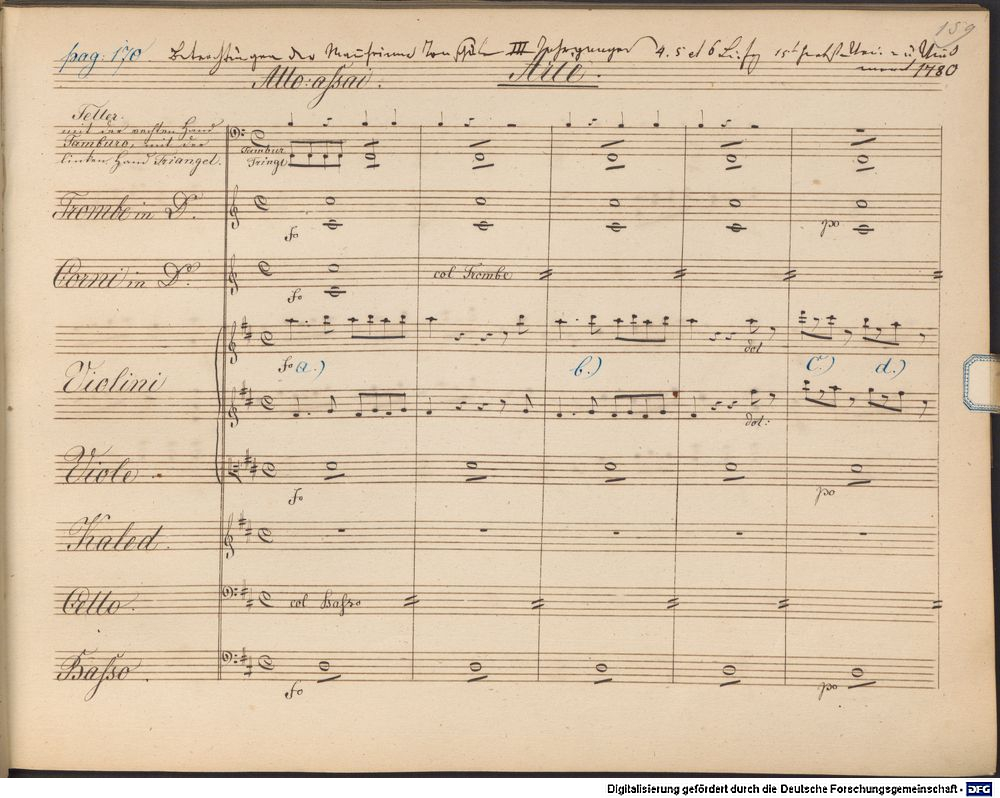 159
pag: 170. Betrachtungen der Mannheimer Tonschule III Jahrganges 4. 5 et 6 Lief 15t
1780
Allo: assai. Aric.
Teller.
mit der rechten Hand
Tamburo, mit der
linken Hand Triangel.
Tambur
Tringl
Trombe in D.
fo
po
Corni in D.
fo
col Trombe
Violini
fo a.)
b.)
dol
c.)
d.)
dol:
Viole.
fo
po
Kaled.
Cello.
col Basso
Basso.
fo
po
Digitalisierung gefördert durch die Deutsche Forschungsgemeinschaft - DFG